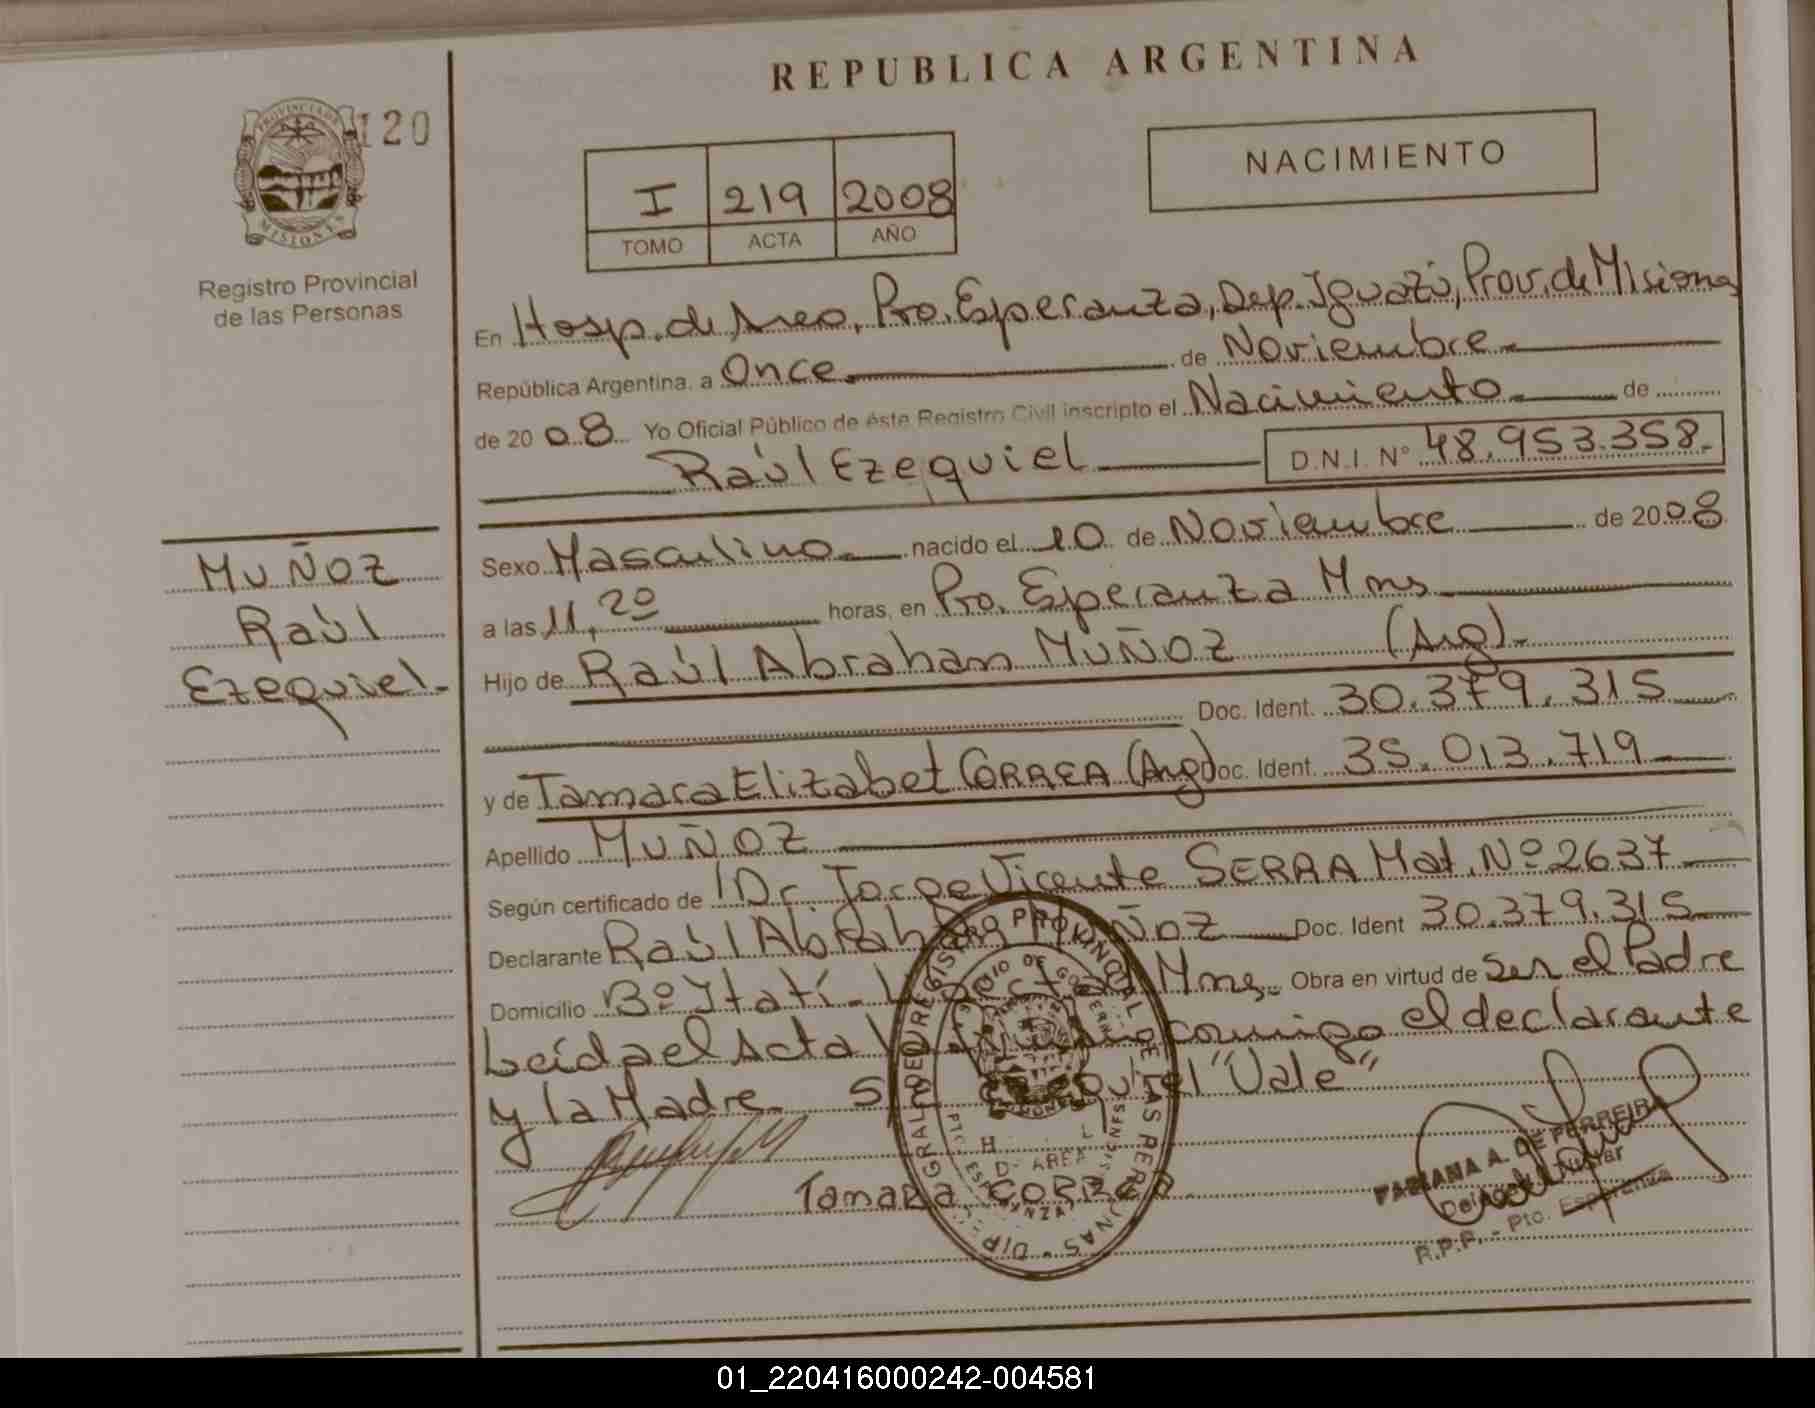 REPUBLICA ARGENTINA
120
PROVINCIA DE
MISIONES
Registro Provincial
de las Personas
I 219 2008
TOMO ACTA AÑO
NACIMIENTO
En Hosp. de Area, Pto. Esperanza, Dep. Iguazú, Prov. de Misiones
República Argentina, a Once de Noviembre
de 2008 Yo Oficial Público de éste Registro Civil inscripto el Nacimiento de
Raúl Ezequiel D.N.I. Nº 48.953.358.
Sexo Masculino nacido el 10 de Noviembre de 2008
a las 11,20 horas, en Pto. Esperanza Mnes
Hijo de Raúl Abraham MUÑOZ (Arg).
Doc. Ident. 30.379.315
y de Tamara Elizabet CORREA (Arg) Doc. Ident. 35.013.719
Apellido MUÑOZ
Según certificado de Dr Jorge Vicente SERRA Mat. Nº 2637
Declarante Raúl Abraham MUÑOZ Doc. Ident 30.379.315
Domicilio Bº Itatí - Mnes. Obra en virtud de Ser el Padre
Leída el Acta conmigo el declarante
y la Madre. "Vale"
MUÑOZ
Raúl
Ezequiel
Tamara CORREA
DIR. GRAL DEL REGISTRO PROVINCIAL DE LAS PERSONAS
FABIANA A. DE FERREIRA
R.P.P. - Pto. Esperanza
01_220416000242-004581